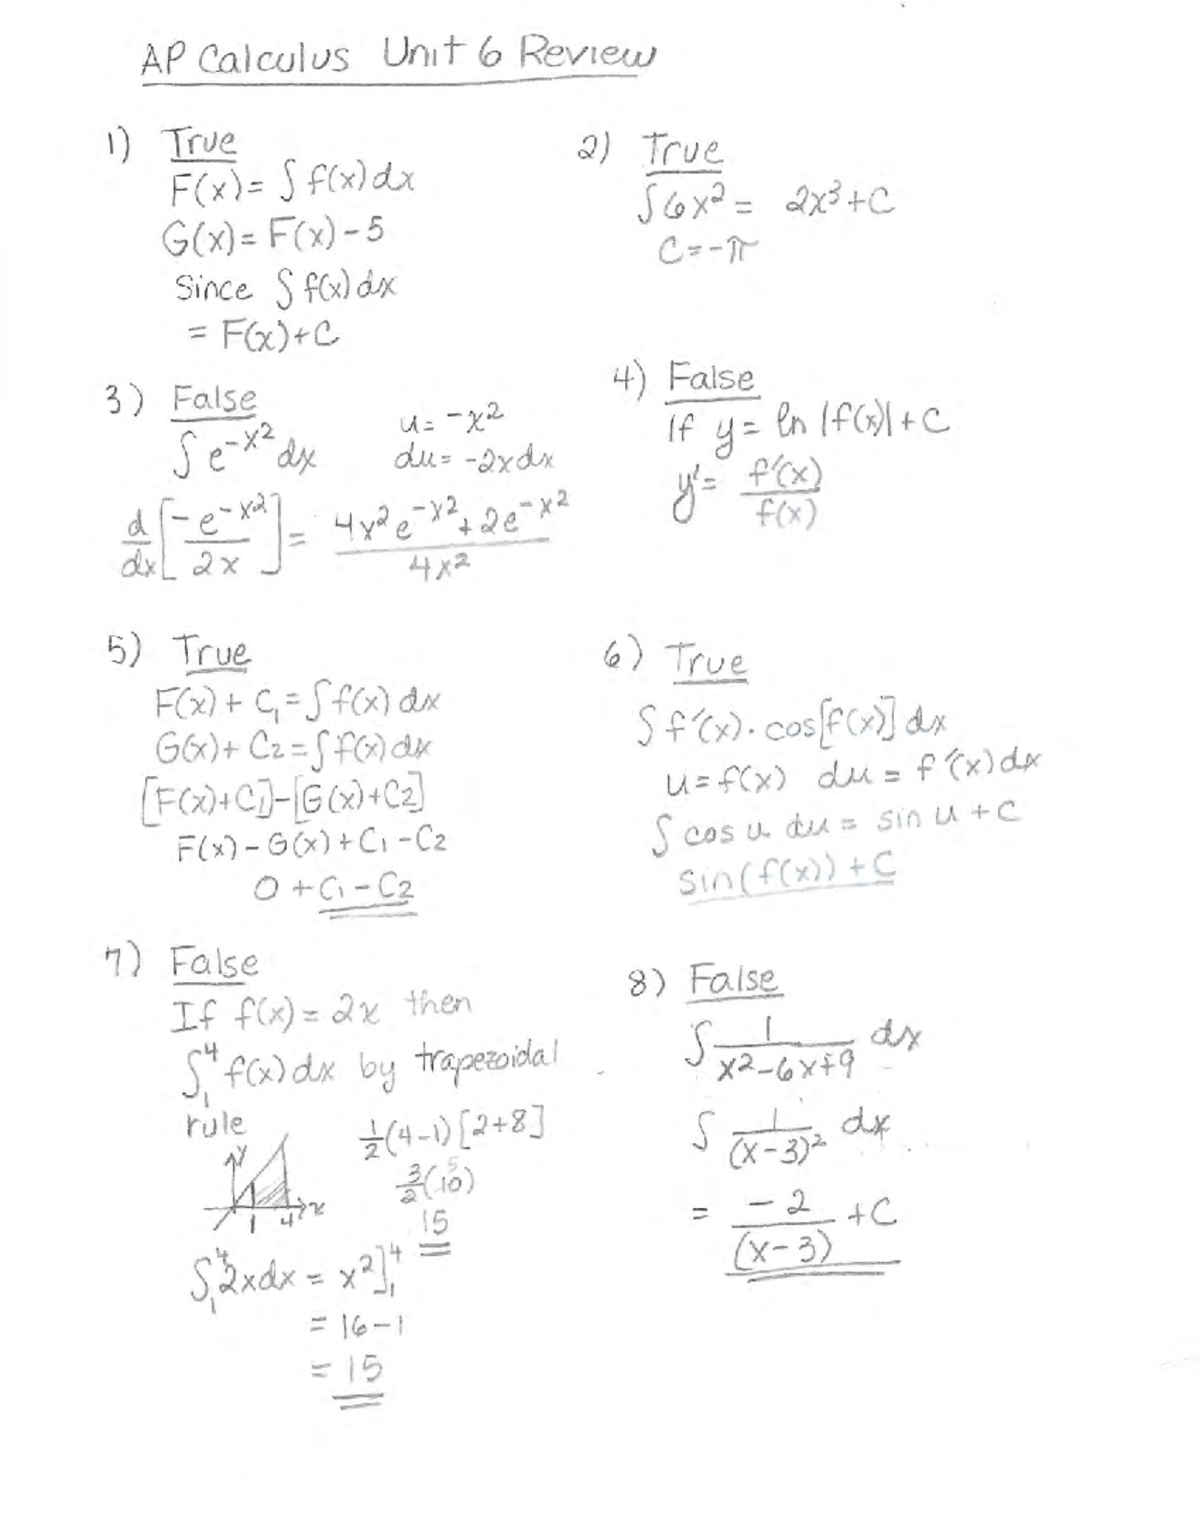 AP Calculus Unit 6 Review
1) True
F(x) = ∫ f(x) dx
G(x) = F(x) - 5
Since ∫ f(x) dx
= F(x) + C
2) True
∫ 6x² = 2x³ + C
C = -π
3) False
∫ e^(-x²) dx
u = -x²
du = -2x dx
d/dx [ -e^(-x²) / 2x ] = (4x² e^(-x²) + 2e^(-x²)) / 4x²
4) False
If y = ln |f(x)| + C
y' = f'(x) / f(x)
5) True
F(x) + C₁ = ∫ f(x) dx
G(x) + C₂ = ∫ f(x) dx
[F(x) + C₁] - [G(x) + C₂]
F(x) - G(x) + C₁ - C₂
0 + C₁ - C₂
6) True
∫ f'(x) · cos[f(x)] dx
u = f(x) du = f'(x) dx
∫ cos u du = sin u + C
sin(f(x)) + C
7) False
If f(x) = 2x then
∫₁⁴ f(x) dx by trapezoidal
rule
½(4-1)[2+8]
3/2(10)
5
15
y
x
1 4
∫₁⁴ 2x dx = x²]₁⁴
= 16 - 1
= 15
8) False
∫ 1/(x² - 6x + 9) dx
∫ 1/(x-3)² dx
= -2/(x-3) + C